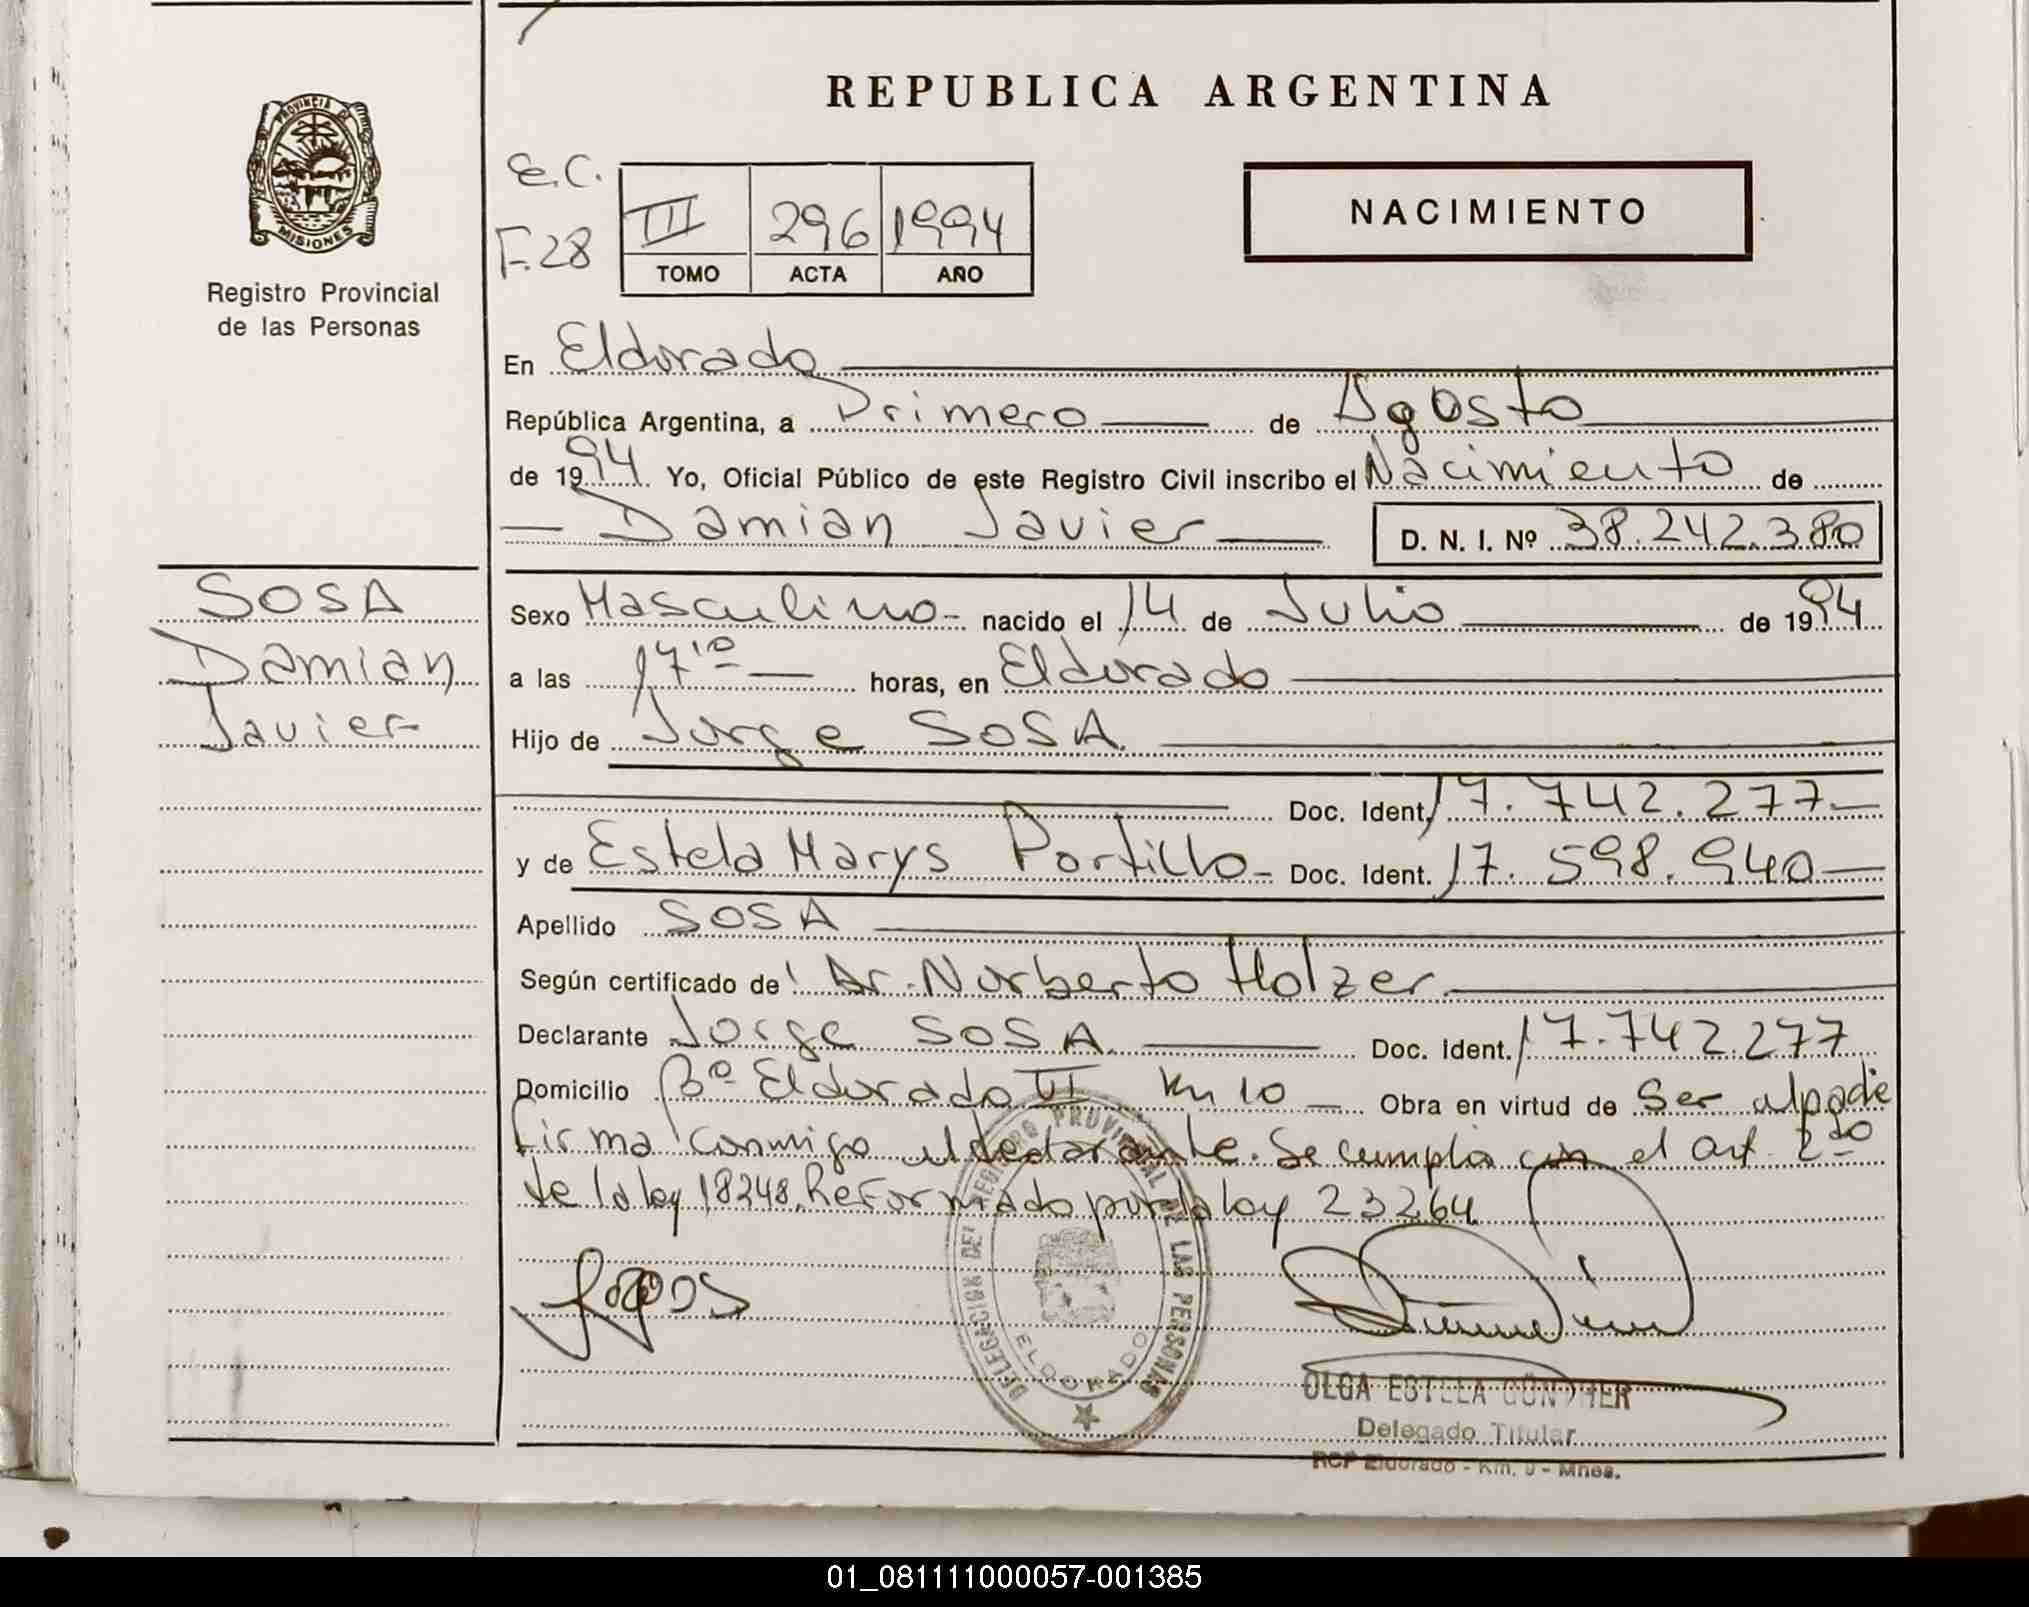 REPUBLICA ARGENTINA
PROVINCIA DE
MISIONES
Registro Provincial
de las Personas
E.C.
F.28
III 296 1994
TOMO ACTA AÑO
NACIMIENTO
En Eldorado
República Argentina, a Primero de Agosto
de 1994 Yo, Oficial Público de este Registro Civil inscribo el Nacimiento de
Damian Javier D. N. I. Nº 38.242.380
SOSA
Damian
Javier
Sexo Masculino nacido el 14 de Julio de 1994
a las 17¹⁰ horas, en Eldorado
Hijo de Jorge SOSA.
Doc. Ident. 17.742.277
y de Estela Marys Portillo Doc. Ident. 17.598.940
Apellido SOSA
Según certificado de Dr. Norberto Holzer
Declarante Jorge SOSA Doc. Ident. 17.742.277
Domicilio Bº Eldorado VI Km 10 Obra en virtud de Ser el padre
Firma conmigo el declarante. Se cumplio con el art. 2do
de la ley 18248, Reformado por la ley 23264
DELEGACION DEL REGISTRO PROVINCIAL DE LAS PERSONAS
ELDORADO
OLGA ESTELA GÜNTHER
Delegado Titular
RCP Eldorado - Km. 9 - Mnes.
01_081111000057-001385